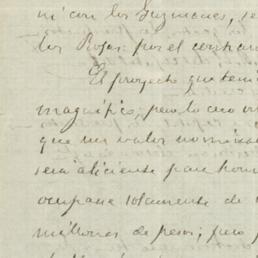 ni con los Guzmanes, se
los Rojas: por el contrar
El proyecto que teni
magnífico, pero lo creo
que un valor no
sera aliciente para hom
ocuparse solamente de
millones de pesos; pero